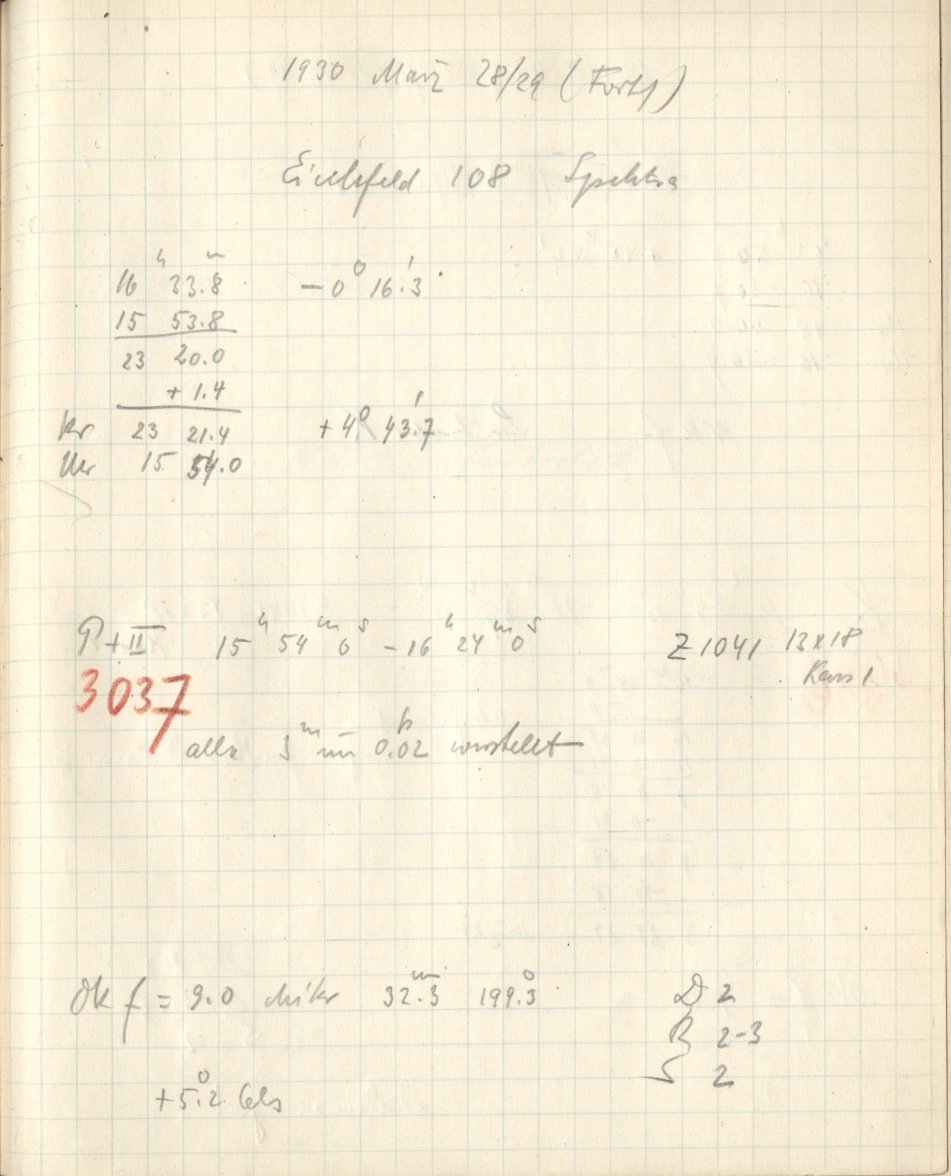 1930 März 28/29 (Forts)
Eichfeld 108 Spektra
16ʰ 33.8ᵐ −0° 16.3'
15 53.8
23 20.0
+ 1.4
Kr 23 21.4 +4° 43.7'
Uhr 15 54.0
P + II 15ʰ 54ᵐ 0ˢ − 16ʰ 24ᵐ 0ˢ Z 1041 13x18
Kass 1
3037
alle 5ᵐ um 0.02 verstellt
Ok f = 9.0 Mikr 32.3 199.3
D 2
R 2-3
S 2
+5.2° Cels